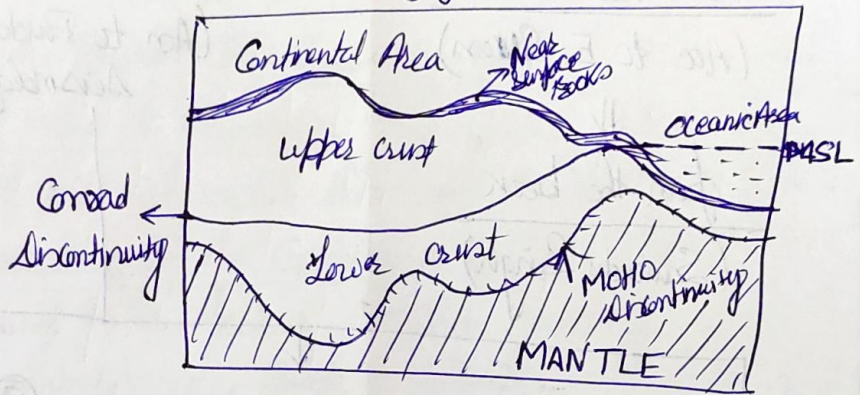 Continental Area
Near
Surface
Rocks
Oceanic Area
MSL
Upper crust
Conrad
Discontinuity
Lower crust
MOHO
Discontinuity
MANTLE